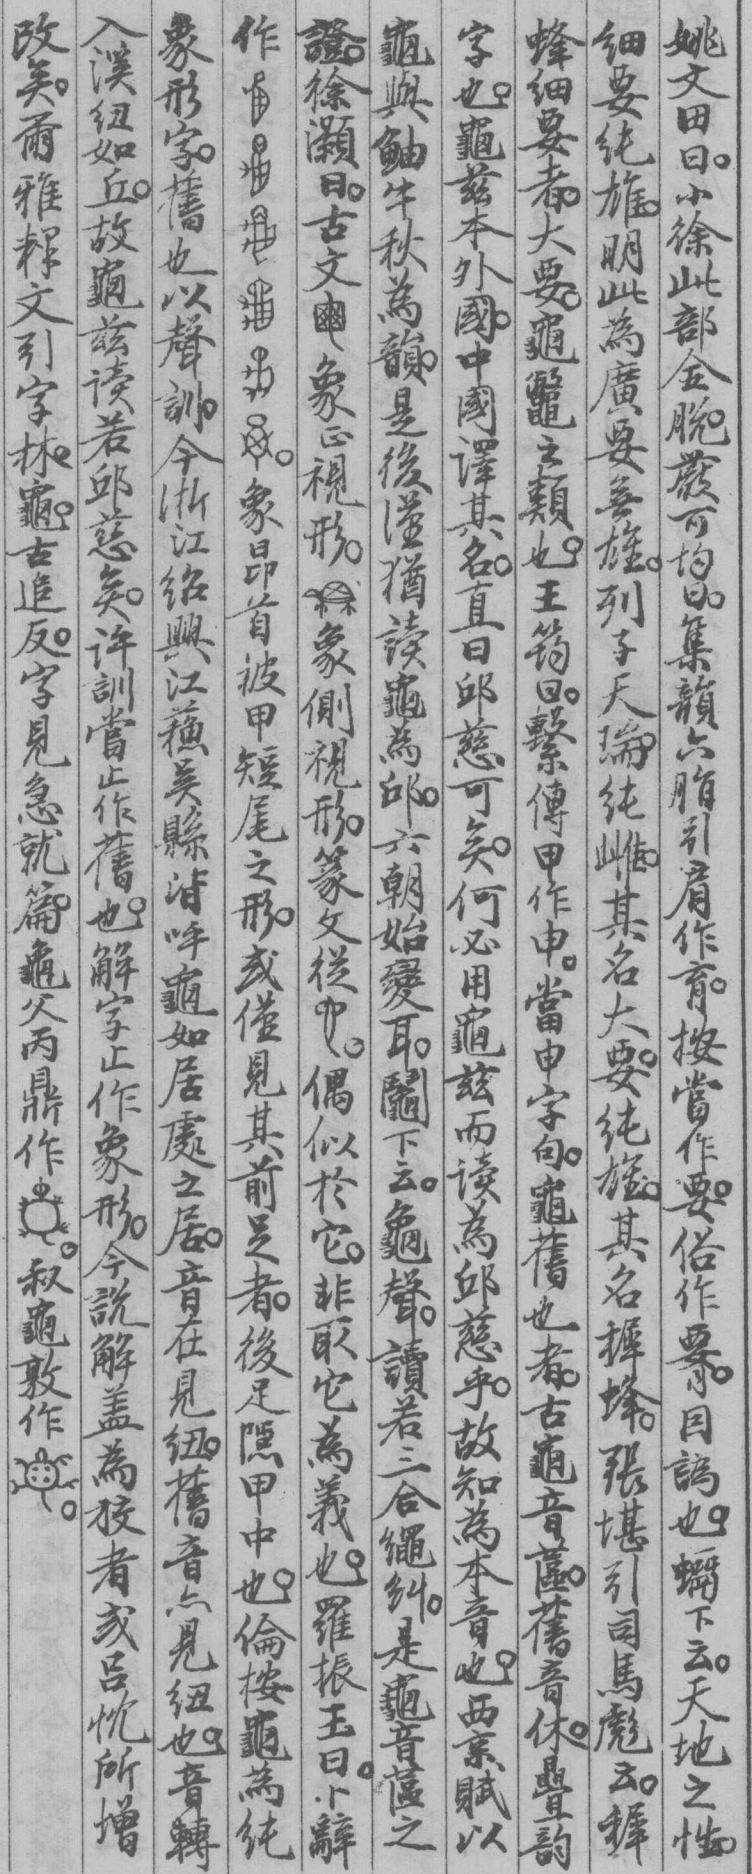 姚文田曰。小徐此部全脫。嚴可均曰。集韻六脂引肩作育。按當作要。俗作𦝫。目譌也。蠣下云。天地之性。
細要純雄。明此為廣要無雄。列子天瑞。純雌其名大要。純雄其名穉蜂。張堪引司馬彪云。穉
蜂細要者。大要。龜鼈之類也。王筠曰。繫傳甲作申。當申字句。龜舊也者。古龜音蓲。舊音休。疊韻
字也。龜茲本外國。中國譯其名。直曰邱慈可矣。何必用龜茲而讀為邱慈乎。故知為本音也。西京賦以
龜與鮋牛秋為韻。是後漢猶讀龜為邱。六朝始變耳。鬮下云。龜聲。讀若三合繩糾。是龜音蓲之
證。徐灝曰。古文象正視形。象側視形。篆文從。偶似於它。非取它為義也。羅振玉曰。卜辭
作。象昂首被甲短尾之形。或僅見其前足者。後足隱甲中也。倫按龜為純
象形字。舊也以聲訓。今浙江紹興江蘇吳縣皆呼龜如居處之居。音在見紐。舊音亦見紐也。音轉
入溪紐如丘。故龜茲讀若邱慈矣。許訓當止作舊也。解字止作象形。今說解蓋為校者或呂忱所增
改矣。爾雅釋文引字林。龜。古追反。字見急就篇。龜父丙鼎作。叔龜敦作。